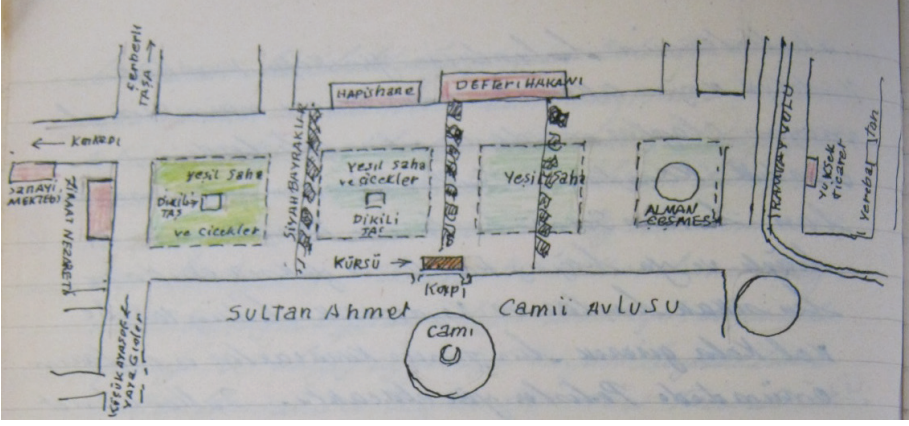 Çerberli
TAŞA
HAPİSHane
DEFTERİ HAKANİ
← KATIRDI
SANAYİ
MEKTEBİ
ZİRAAT NEZARETİ
yeşil saha
DİKİLİ
TAŞ
ve çiçekler
SİYAH BAYRAKLAR
Yeşil saha
ve çiçekler
DİKİLİ
TAŞ
Yeşil saha
ALMAN
ÇEŞMESİ
TRAMVAY YOLU
YÜKSEK
Ticaret
Yerebatan
KÜRSÜ →
Kapı
Sultan Ahmet Camii AVLUSU
Cami
KÜÇÜK AYASOFYA
YAYA Gider